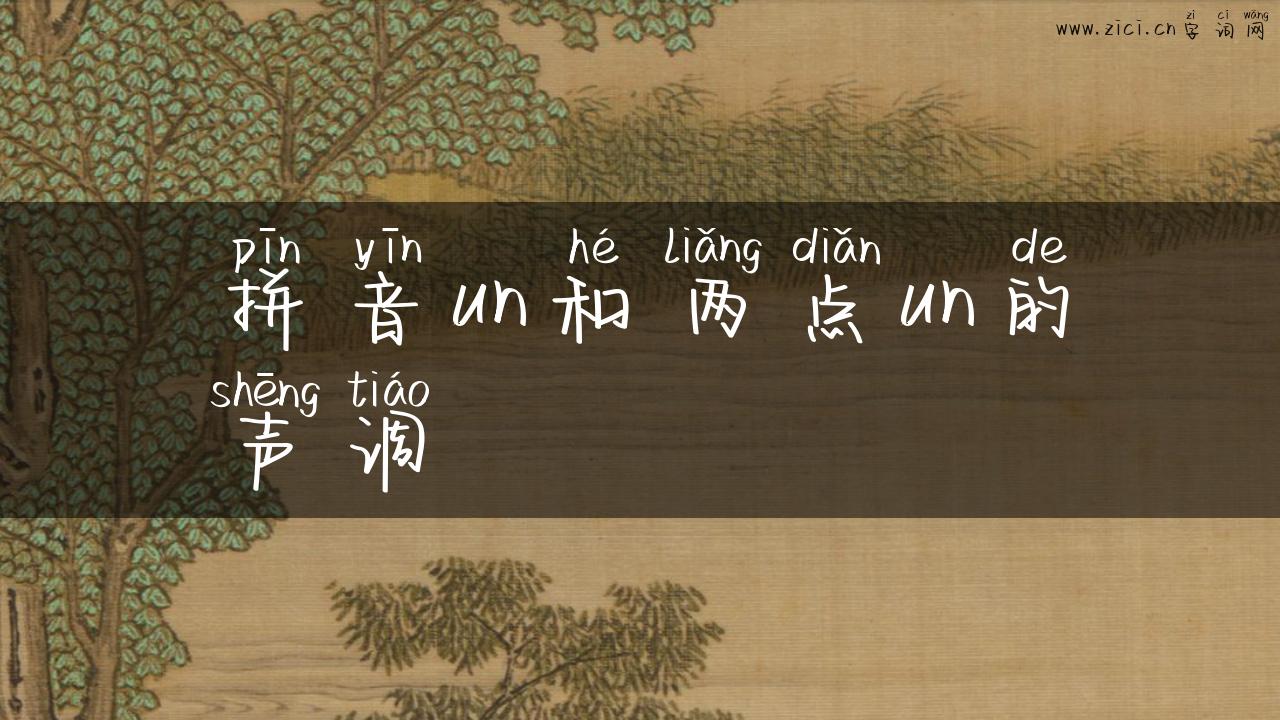 zì cí wǎng
www.zici.cn字词网
pīn yīn hé liǎng diǎn de
拼音un和两点un的
shēng tiáo
声调